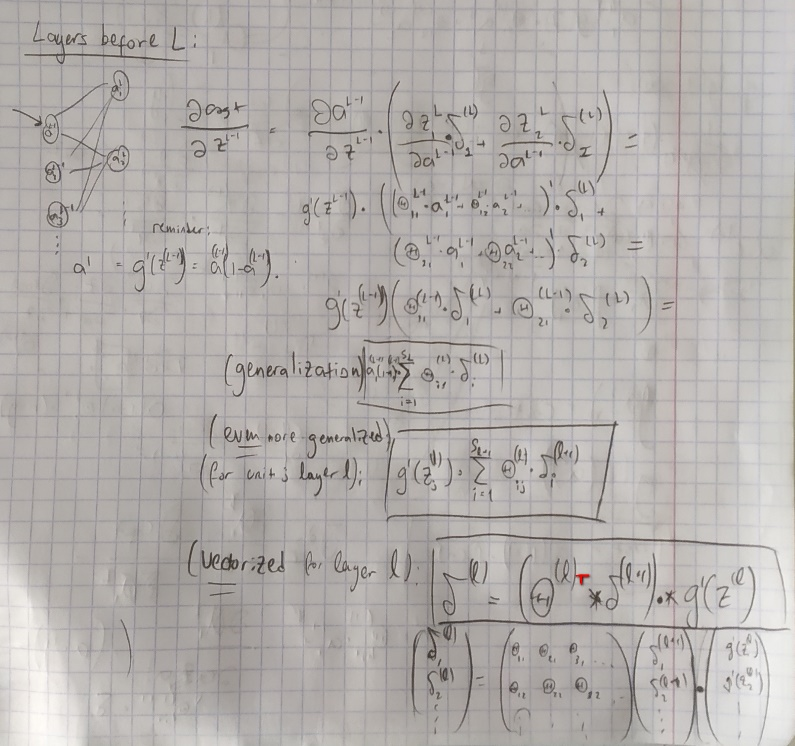 Layers before L:
∂cost/∂z^(L-1) = ∂a^(L-1)/∂z^(L-1) · (∂z_1^L/∂a^(L-1) · δ_1^(L) + ∂z_2^L/∂a^(L-1) · δ_2^(L)) =
g'(z^(L-1)) · ((Θ_11^(L-1) · a_1^(L-1) + Θ_12^(L-1) · a_2^(L-1) + ...)' · δ_1^(L) +
(Θ_21^(L-1) · a_1^(L-1) + Θ_22 a_2^(L-1) + ...)' · δ_2^(L)) =
reminder:
a' = g'(z^(L-1)) = a^(L-1)(1-a^(L-1)).
g'(z^(L-1))(Θ_11^(L-1) · δ_1^(L) + Θ_21^(L-1) · δ_2^(L)) =
(generalization)
Σ_{i=1}^{S_L} Θ_i1^(L) · δ_i^(L)
(even more generalized),
(for unit j layer l): g'(z_j^(l)) · Σ_{i=1}^{S_{l+1}} Θ_ij^(l) · δ_i^(l+1)
(Vectorized for layer l): δ^(l) = (Θ^(l)T * δ^(l+1)) .* g'(z^(l))
(δ_1^(l) δ_2^(l) ⋮) = (Θ_11 Θ_21 Θ_31 ... Θ_12 Θ_22 Θ_32 ⋮ ⋮ ⋮)(δ_1^(l+1) δ_2^(l+1) ⋮) · (g'(z_1^(l)) g'(z_2^(l)) ⋮)